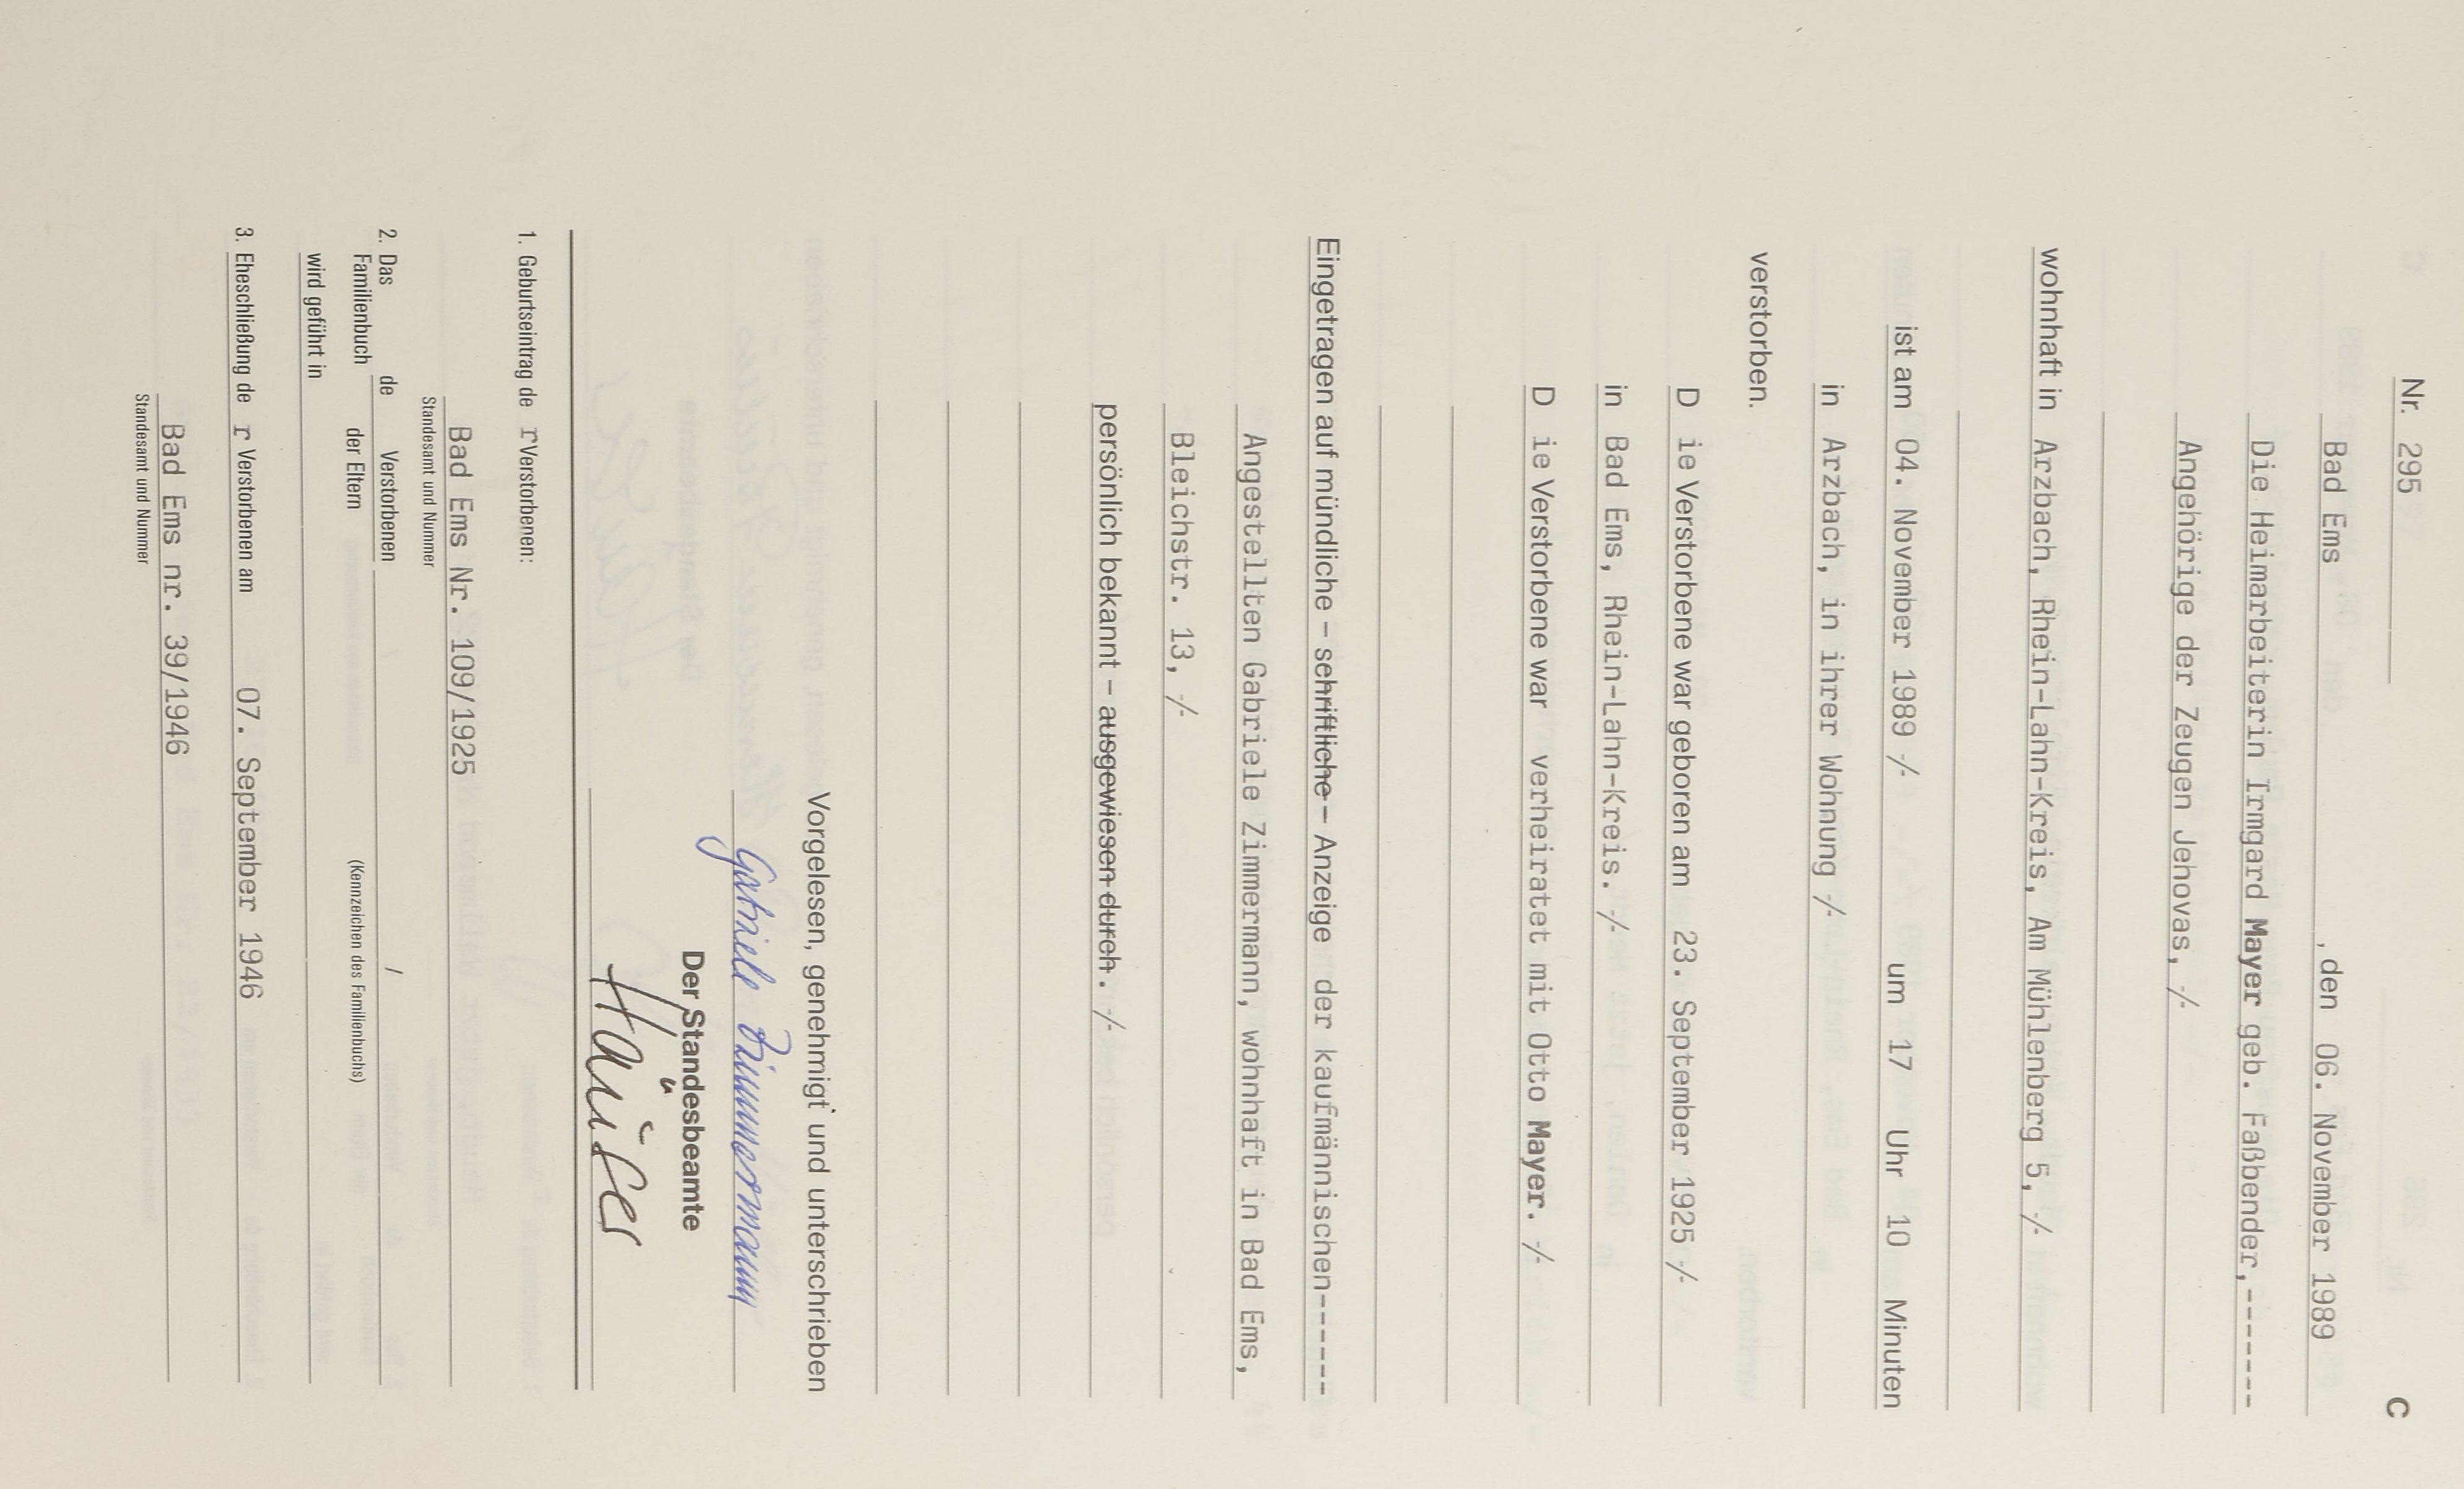 Nr. 295
C
Bad Ems , den 06. November 1989
Die Heimarbeiterin Irmgard Mayer geb. Faßbender,-------
Angehörige der Zeugen Jehovas, -/-
wohnhaft in Arzbach, Rhein-Lahn-Kreis, Am Mühlenberg 5, -/-
ist am 04. November 1989 -/- um 17 Uhr 10 Minuten
in Arzbach, in ihrer Wohnung -/-
verstorben.
D ie Verstorbene war geboren am 23. September 1925 -/-
in Bad Ems, Rhein-Lahn-Kreis. -/-
D ie Verstorbene war verheiratet mit Otto Mayer. -/-
Eingetragen auf mündliche – schriftliche – Anzeige der kaufmännischen-------
Angestellten Gabriele Zimmermann, wohnhaft in Bad Ems,
Bleichstr. 13, -/-
persönlich bekannt – ausgewiesen durch . -/-
Vorgelesen, genehmigt und unterschrieben
Gabriele Zimmermann
Der Standesbeamte
Häuser
1. Geburtseintrag de r Verstorbenen:
Bad Ems Nr. 109/1925
Standesamt und Nummer
2. Das Familienbuch de Verstorbenen /
der Eltern (Kennzeichen des Familienbuchs)
wird geführt in
3. Eheschließung de r Verstorbenen am 07. September 1946
Bad Ems nr. 39/1946
Standesamt und Nummer